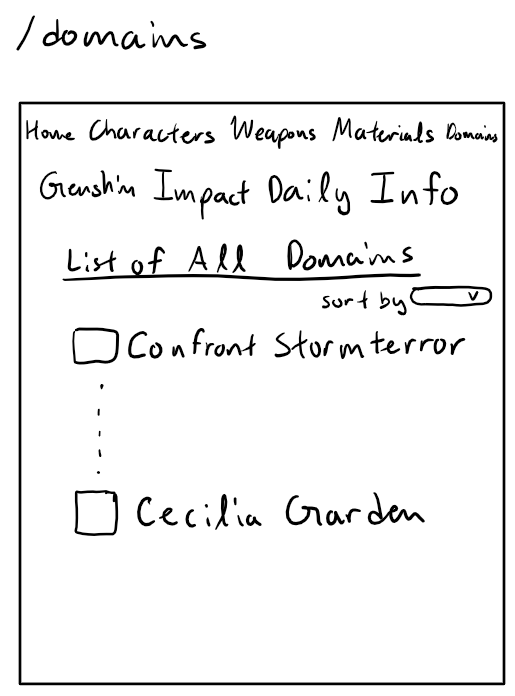 /domains
Home Characters Weapons Materials Domains
Genshin Impact Daily Info
List of All Domains
sort by
Confront Stormterror
Cecilia Garden